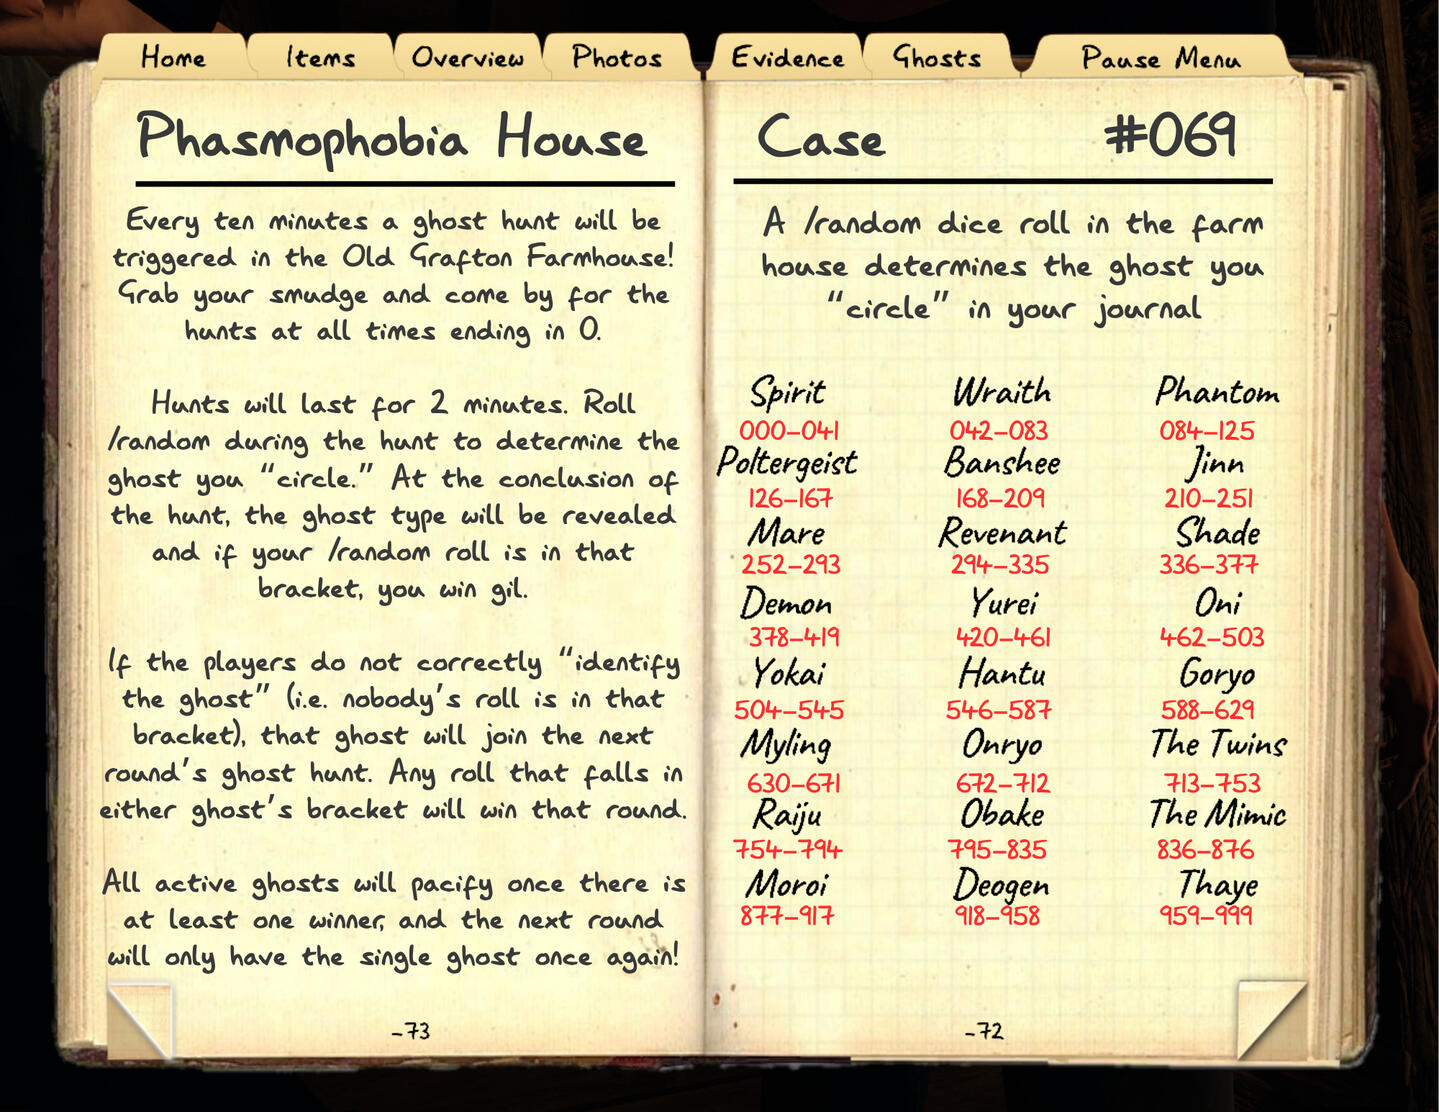 Home Items Overview Photos Evidence Ghosts Pause Menu
Phasmophobia House
Every ten minutes a ghost hunt will be
triggered in the Old Grafton Farmhouse!
Grab your smudge and come by for the
hunts at all times ending in 0.
Hunts will last for 2 minutes. Roll
/random during the hunt to determine the
ghost you “circle.” At the conclusion of
the hunt, the ghost type will be revealed
and if your /random roll is in that
bracket, you win gil.
If the players do not correctly “identify
the ghost” (i.e. nobody’s roll is in that
bracket), that ghost will join the next
round’s ghost hunt. Any roll that falls in
either ghost’s bracket will win that round.
All active ghosts will pacify once there is
at least one winner, and the next round
will only have the single ghost once again!
-73
Case #069
A /random dice roll in the farm
house determines the ghost you
“circle” in your journal
Spirit Wraith Phantom
000-041 042-083 084-125
Poltergeist Banshee Jinn
126-167 168-209 210-251
Mare Revenant Shade
252-293 294-335 336-377
Demon Yurei Oni
378-419 420-461 462-503
Yokai Hantu Goryo
504-545 546-587 588-629
Myling Onryo The Twins
630-671 672-712 713-753
Raiju Obake The Mimic
754-794 795-835 836-876
Moroi Deogen Thaye
877-917 918-958 959-999
-72